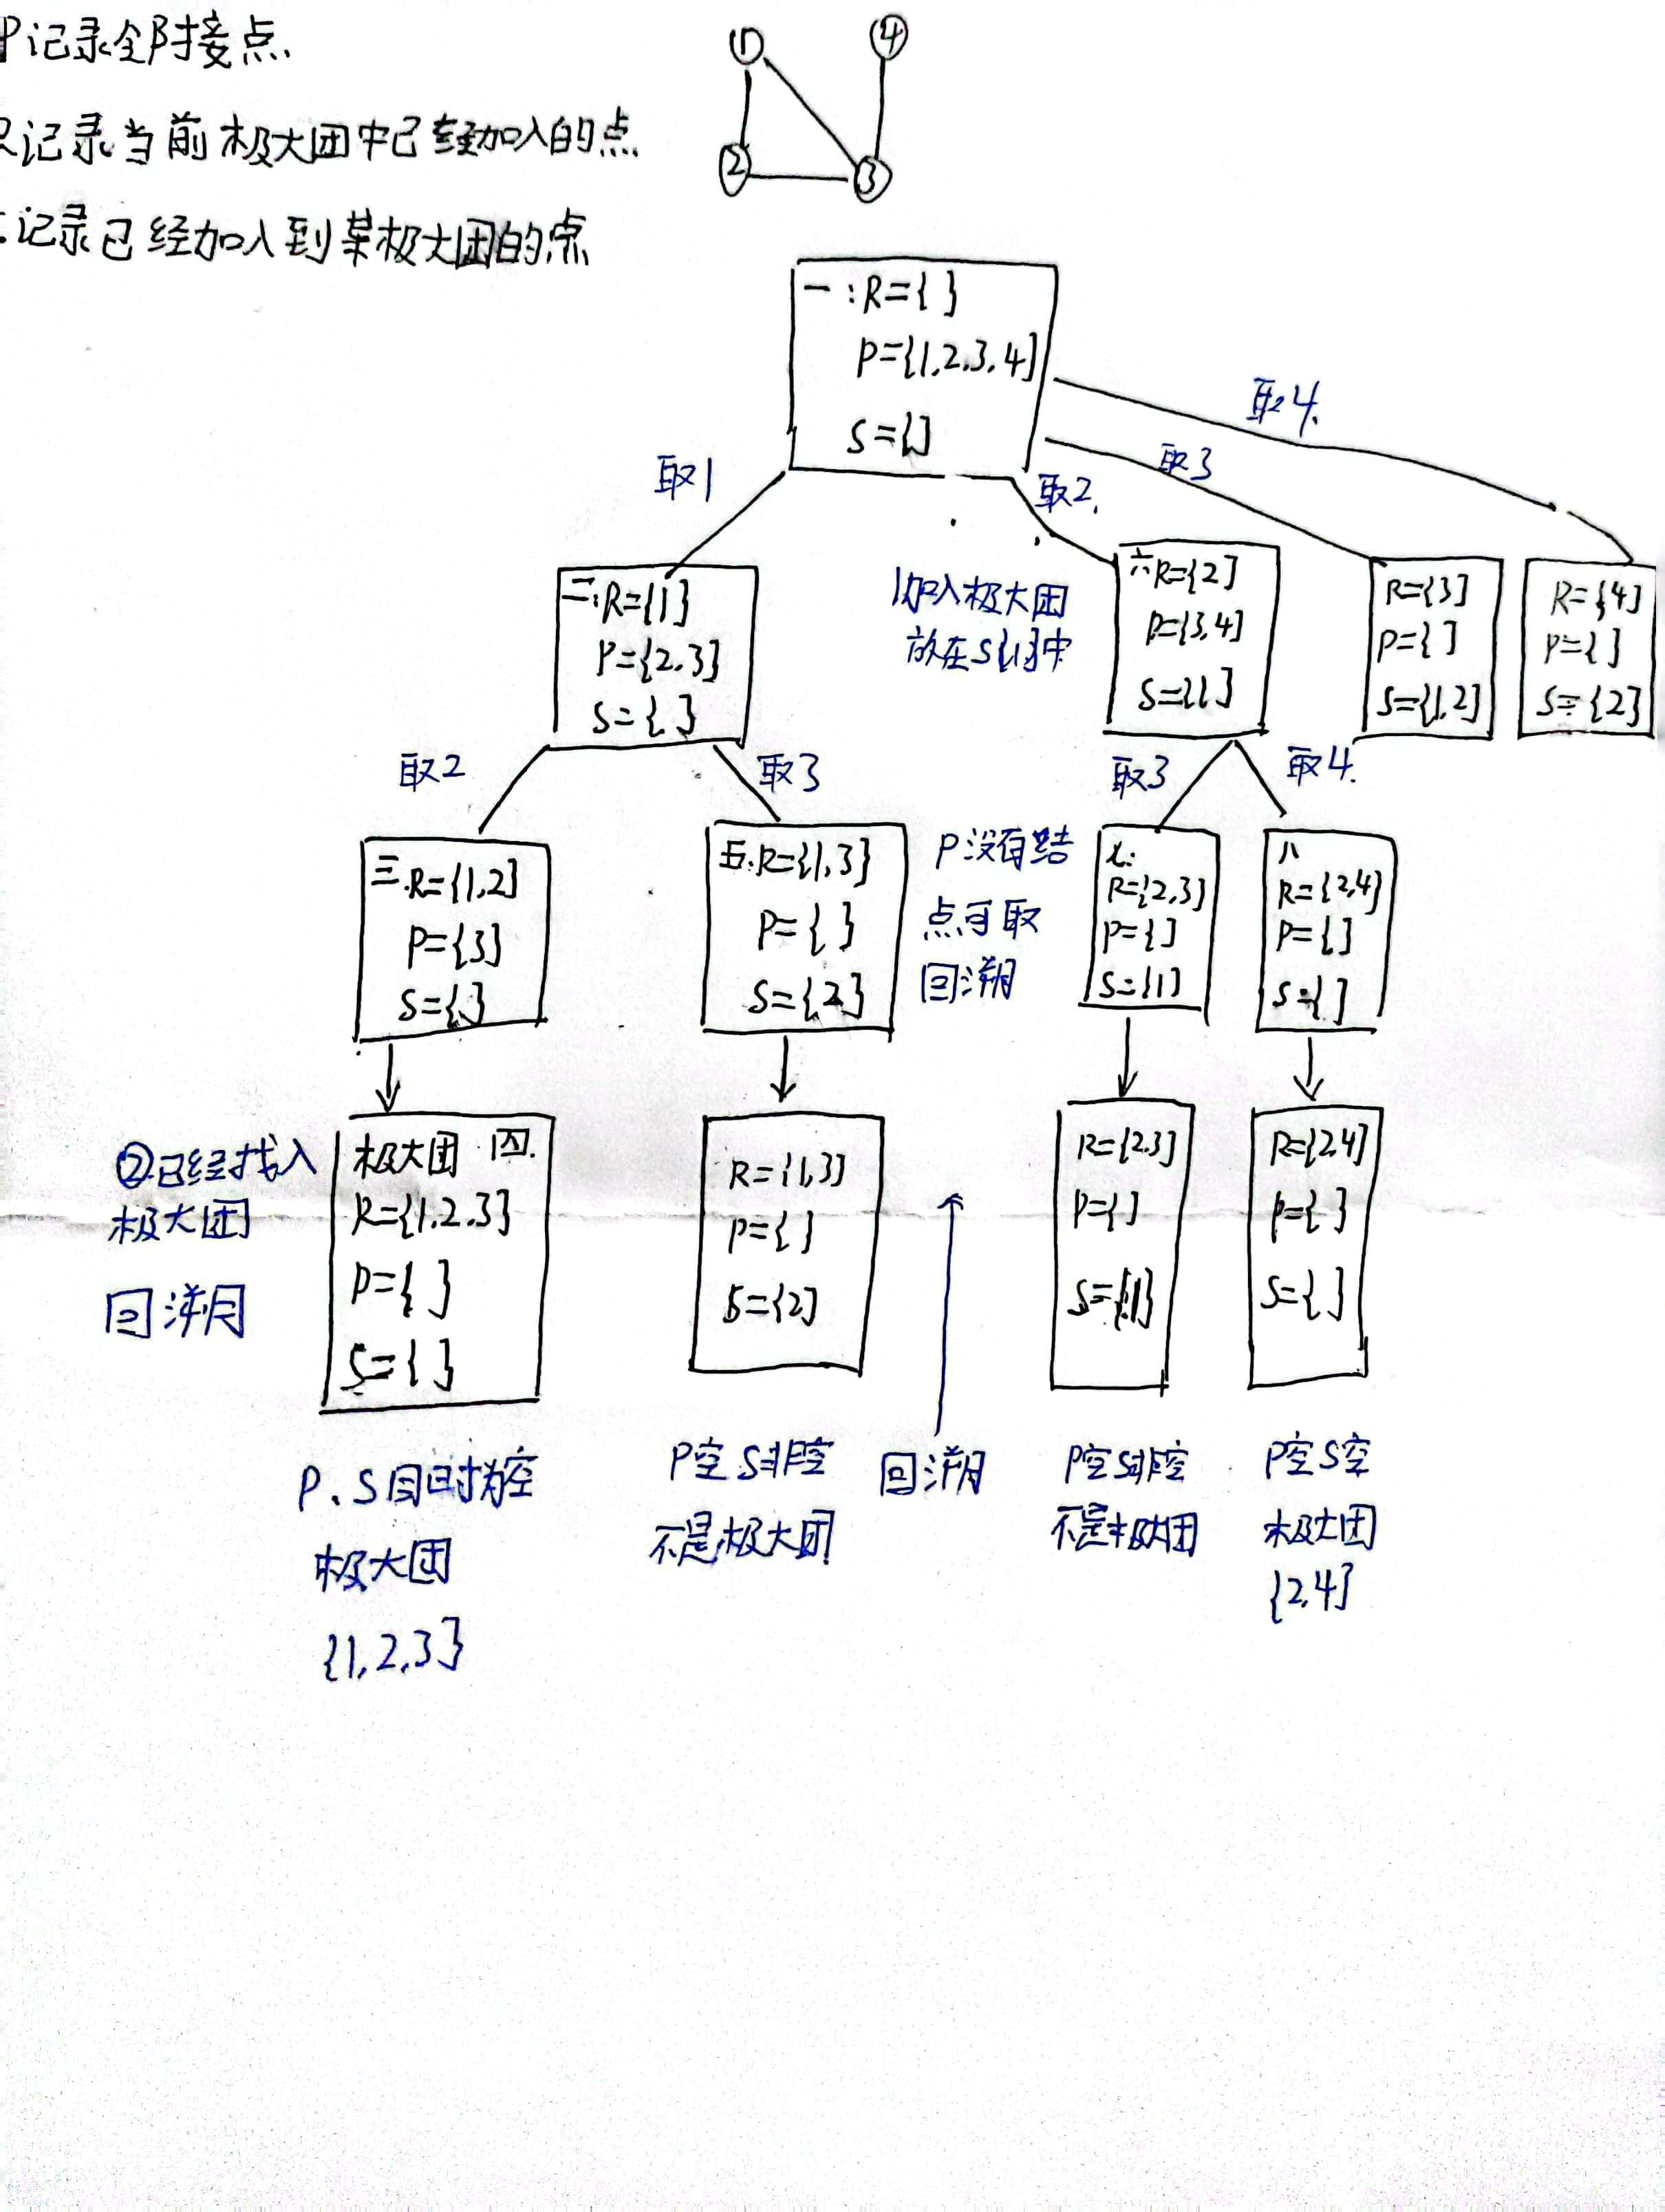 P记录全邻接点.
R记录当前极大团中已经加入的点
记录已经加入到某极大团的点
① ④
② ③
一:R={ }
P={1,2,3,4}
S={}
取1
取2.
取3
取4.
二:R={1}
P={2,3}
S={ }
1加入极大团
放在S{1}中
六R={2}
P={3,4}
S={1}
R={3}
P={ }
S={1,2}
R={4}
P={ }
S={2}
取2
取3
取3
取4.
三.R={1,2}
P={3}
S={ }
五.R={1,3}
P={ }
S={2}
P没有结
点可取
回溯
七:
R={2,3}
P={}
S={1}
八
R={2,4}
P={}
S={ }
②已经找入
极大团
回溯
极大团 四.
R={1,2,3}
P={ }
S={ }
R={1,3}
P={ }
S={2}
R={2,3}
P={}
S={1}
R={2,4}
P={ }
S={ }
P、S同时为空
极大团
{1,2,3}
P空S非空
不是极大团
回溯
P空S非空
不是极大团
P空S空
极大团
{2,4}